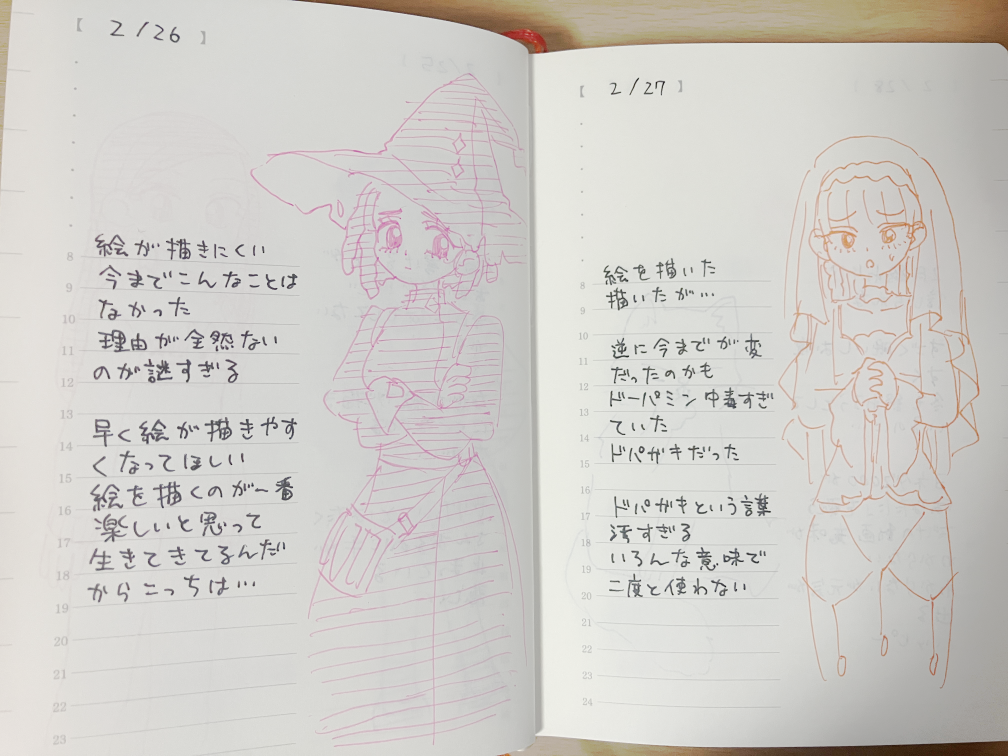 【 2/26 】
8
9
10
11
12
13
14
15
16
17
18
19
20
21
22
23
絵が描きにくい
今までこんなことは
なかった
理由が全然ない
のが謎すぎる
早く絵が描きやす
くなってほしい
絵を描くのが一番
楽しいと思って
生きてきてるんだ
からこっちは…
【 2/27 】
8
9
10
11
12
13
14
15
16
17
18
19
20
21
22
23
24
絵を描いた
描いたが…
逆に今までが変
だったのかも
ドーパミン中毒すぎ
ていた
ドパガキだった
ドパガキという言葉
すぎる
いろんな意味で
二度と使わない